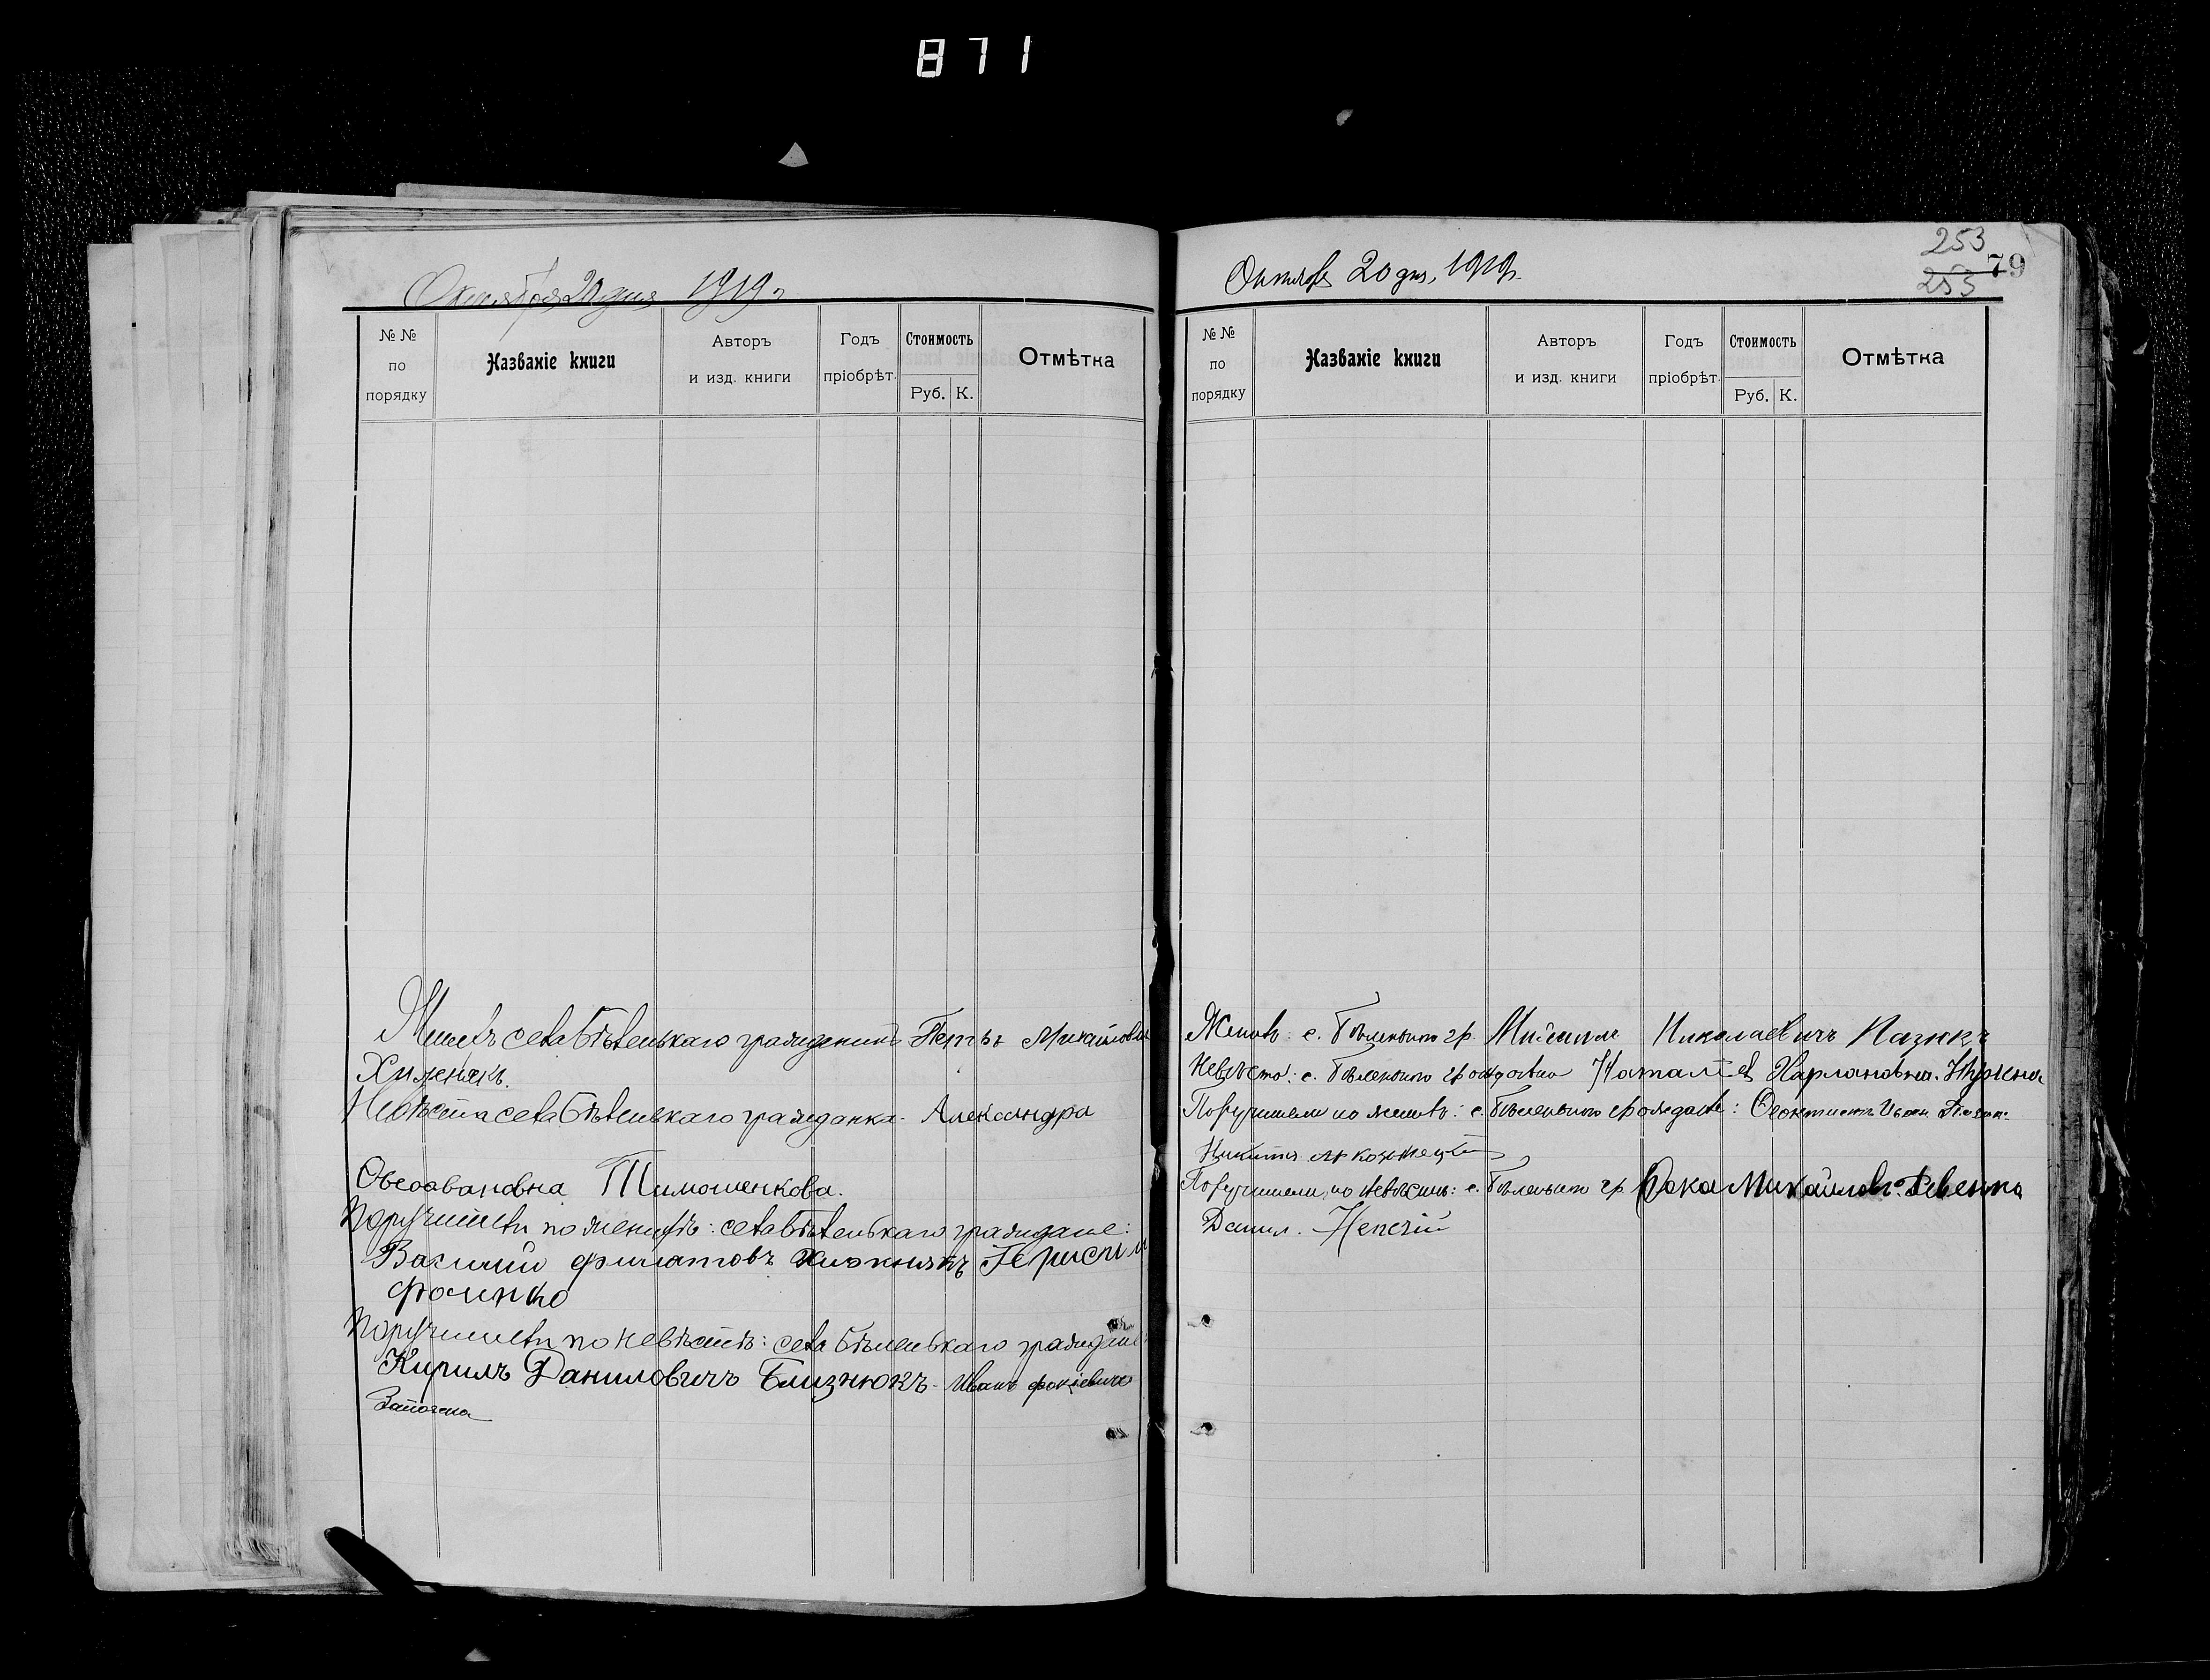 871
Октября 20 дня 1919 г
№ № по порядку
Названіе книги
Авторъ и изд. книги
Годъ пріобрѣт.
Стоимость
Руб. К.
Отмѣтка
Женихъ села Бѣленькаго гражданинъ Петръ Михайлович
Хижнякъ.
Невѣста села Бѣленькаго гражданка Александра
Тимошенкова.
Поручители по женихѣ: села Бѣленькаго граждане:
Василий Филатовъ Хижнякъ
Фоменко
Поручители по невѣстѣ: села Бѣленькаго граждане
Кирилъ Даниловичъ Близнюкъ. Иванъ Фокіевичъ
253
253 79
Октября 20 дня, 1919 г.
№ № по порядку
Названіе книги
Авторъ и изд. книги
Годъ пріобрѣт.
Стоимость
Руб. К.
Отмѣтка
Женихъ: с. Бѣленькаго гр. Михаилъ Николаевичъ Пазюкъ
Невѣста: с. Бѣленькаго гражданка Наталія
Поручители по женихѣ: с. Бѣленькаго граждане: Феоктистъ Иван.
Никита
Поручители по невѣстѣ: с. Бѣленькаго гр. Фока Михайлов. Левенко
Данил.